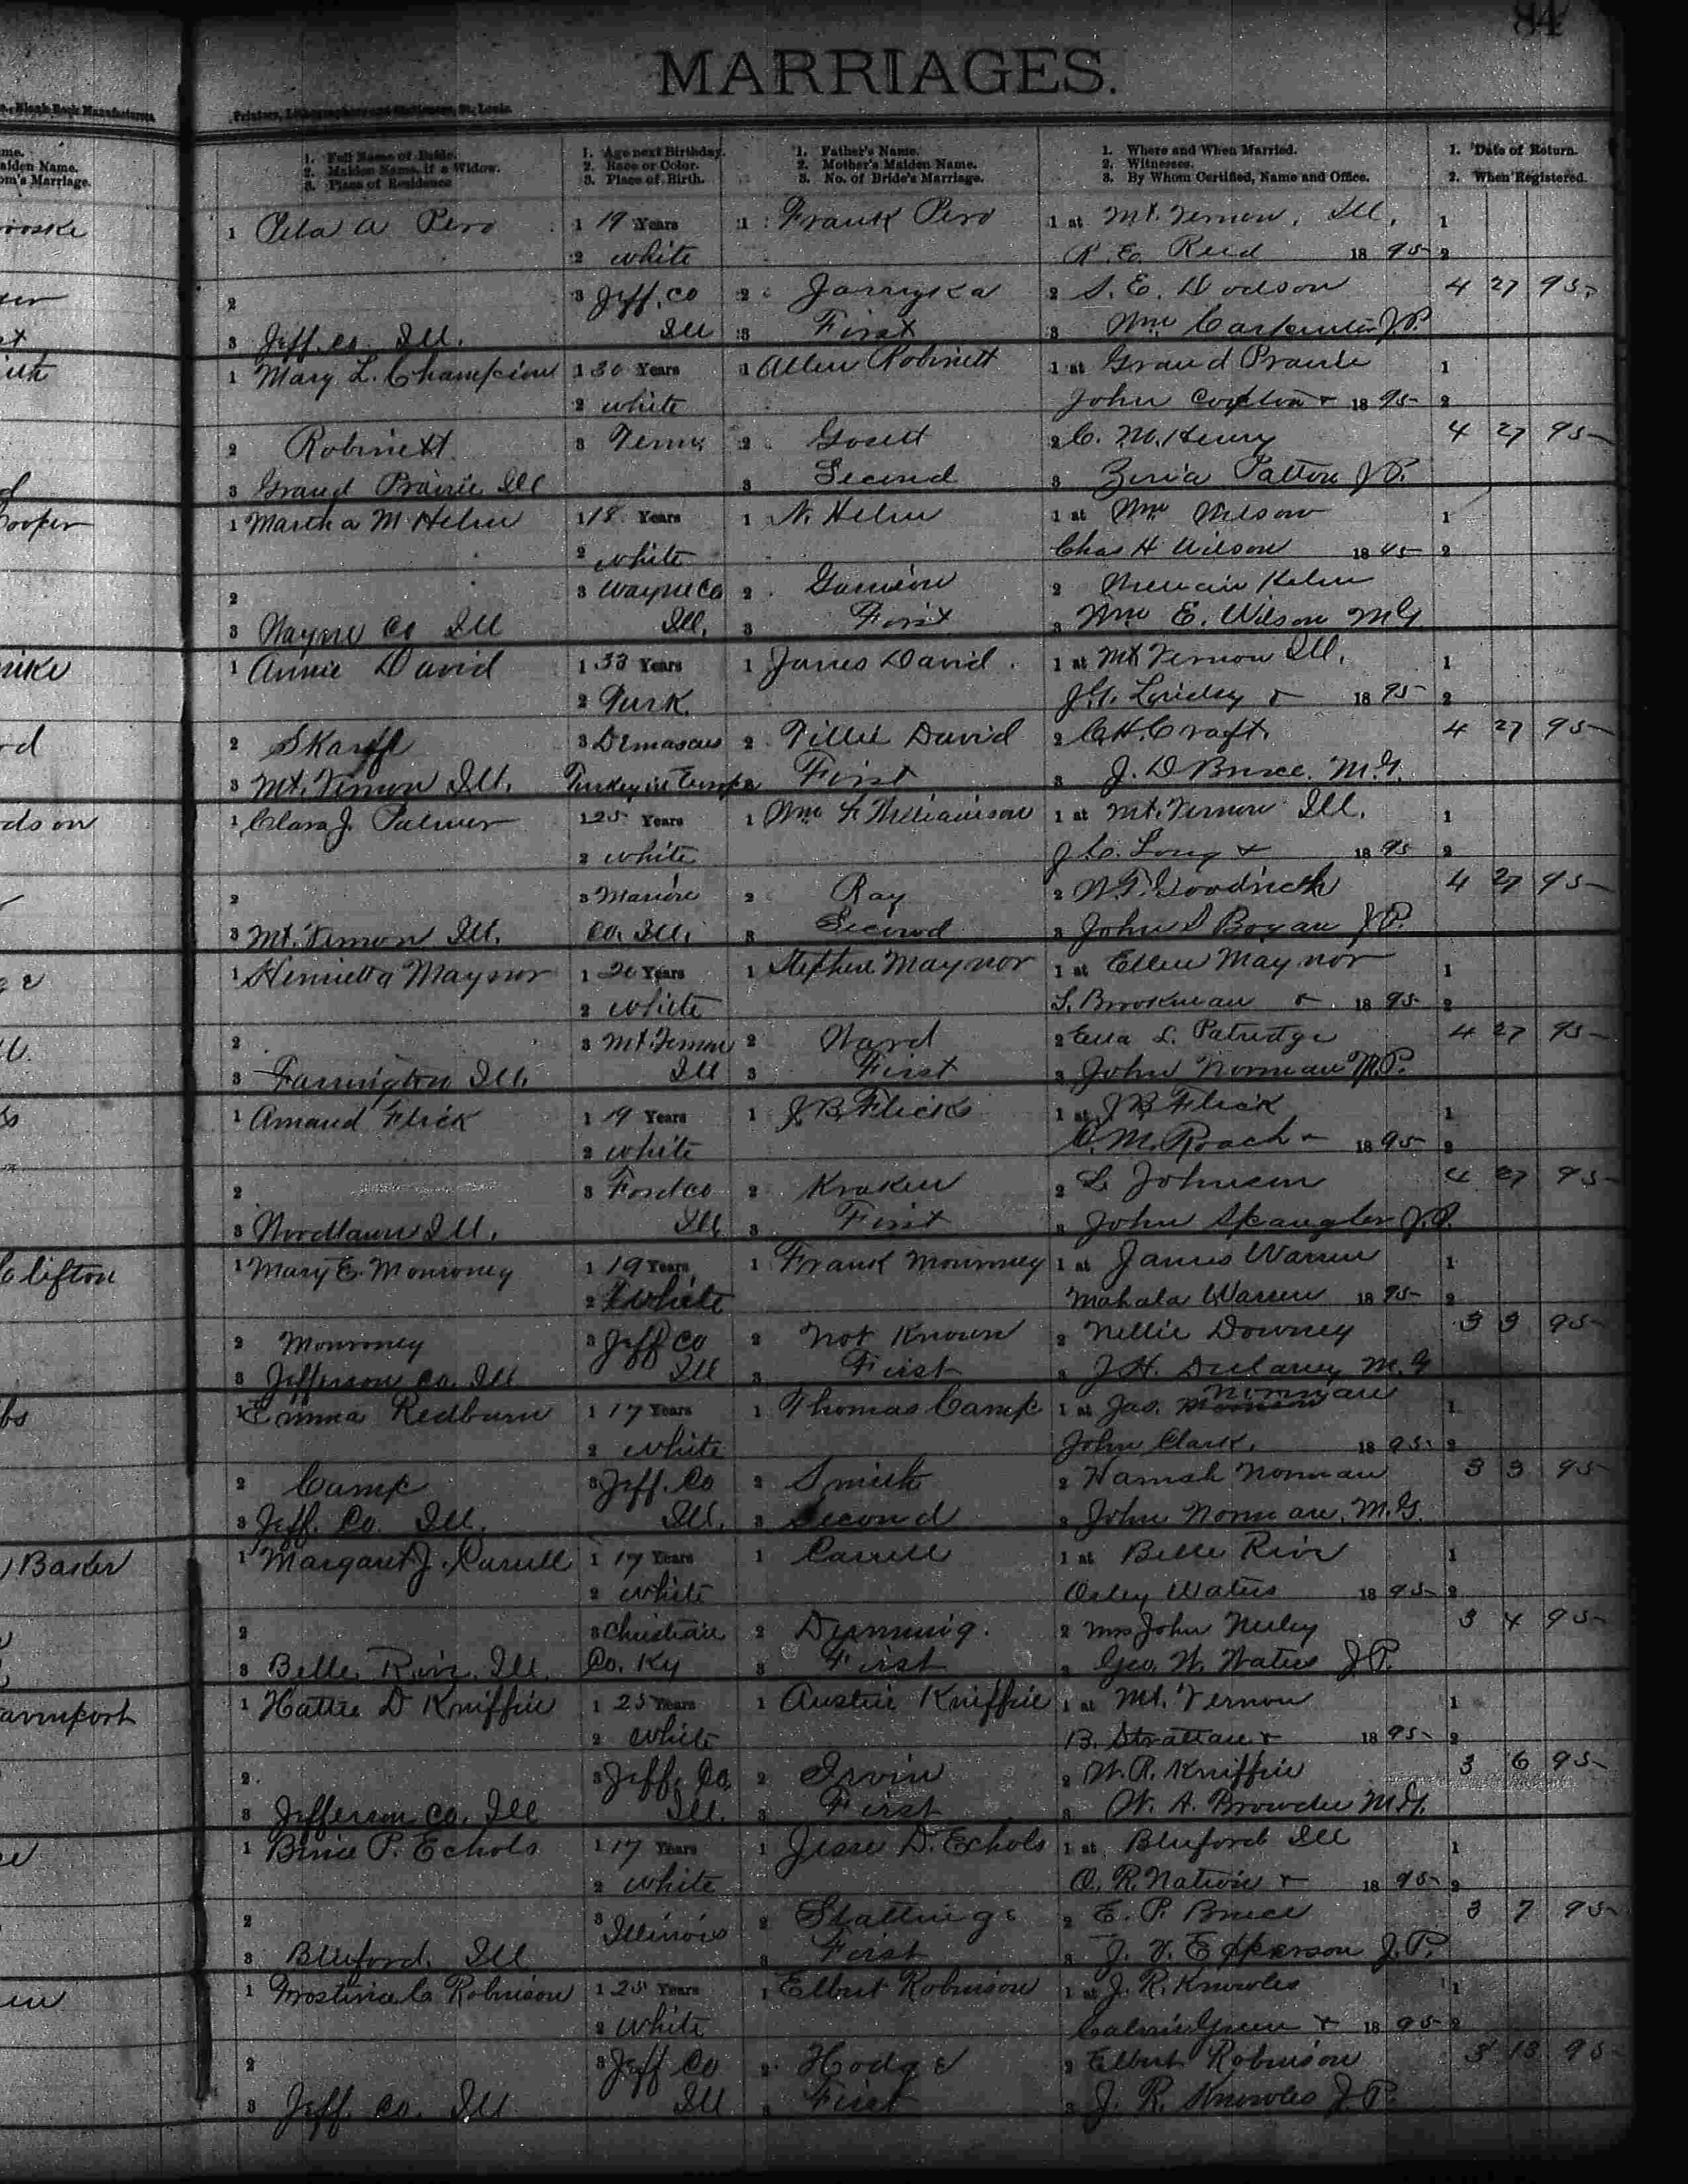 84
MARRIAGES.
Blank Book Manufacturers
Printers, Lithographers and Stationers, St. Louis.
me.
aiden Name.
om's Marriage.
1. Full Name of Bride.
2. Maiden Name, if a Widow.
3. Place of Residence
1. Age next Birthday.
2. Race or Color.
3. Place of Birth.
1. Father's Name.
2. Mother's Maiden Name.
3. No. of Bride's Marriage.
1. Where and When Married.
2. Witnesses.
3. By Whom Certified, Name and Office.
1. Date of Return.
2. When Registered.
1 A Pero 1 19 Years 1 Frank Pero 1 at Mt. Vernon, Ill. 1
2 white R. E. Reed 18 95 2
2 3 Jeff. co 2 Jarryka 2 S. E. Dodson 4 27 95
3 Jeff. co. Ill. Ill 3 First 3 Wm Carpenter J.P.
1 Mary L. Champion 1 30 Years 1 Allen Robinett 1 at Grand Prairie 1
2 white John + 18 95 2
2 Robinett 3 Tenn 2 Gosett 2 C. M. Henry 4 27 95
3 Grand Prairie Ill 3 Second 3 Patton J.P.
Cooper 1 Martha M Helm 1 18 Years 1 N. Helm 1 at Wm Wilson 1
2 white Chas H Wilson 18 95 2
2 3 Wayne Co 2 2 Helm
3 Wayne Co Ill Ill. 3 First 3 Wm E. Wilson M.G.
1 Annie David 1 33 Years 1 James David 1 at Mt Vernon Ill. 1
2 Turk. + 18 95 2
2 Skarff 3 Demascus 2 Tillie David 2 C.H. Craft. 4 27 95
3 Mt. Vernon Ill. Turkey in Europe 3 First 3 J. D Bruce. M.G.
dson 1 Clara J. Palmer 1 25 Years 1 Wm F. Williamson 1 at Mt. Vernon Ill. 1
2 white J C. Long + 18 95 2
2 3 Marion 2 Ray 2 W. T. Goodrich 4 27 95
3 Mt. Vernon Ill. Co. Ill. 3 Second 3 John S Bogan J.P.
1 Henrietta Maynor 1 20 Years 1 Stephen Maynor 1 at Ellen Maynor 1
2 white S. Brookman + 18 95 2
2 3 Mt Vernon 2 Ward 2 L. Patridge 4 27 95
3 Farrington Ill. Ill 3 First 3 John Norman
1 Amand Flick 1 19 Years 1 J. B. Flick 1 at J B Flick 1
2 white C. M. Roach + 18 95 2
2 3 Ford co 2 Kraken 2 L. Johnson 4 27 95
3 Woodlawn Ill. Ill 3 First 3 John Spangler J.P.
Clifton 1 Mary E. Monroney 1 19 Years 1 Frank Monroney 1 at James Warren 1
2 White Mahala Warren 18 95 2
2 Monroney 3 Jeff Co 2 Not Known 2 Nellie Downey 3 3 95
3 Jefferson Co. Ill Ill 3 First 3 J. H. Dulaney M.G
1 Emma Redburn 1 17 Years 1 Thomas Camp 1 at Jas. Norman 1
2 white John Clark. 18 95 2
2 Camp 3 Jeff. Co 2 Smith 2 Hannah Norman 3 3 95
3 Jeff. Co. Ill. Ill. 3 Second 3 John Norman. M.G.
Baker 1 Margaret J. Carrell 1 17 Years 1 Carrell 1 at Belle Rive 1
2 White Waters 18 95 2
2 3 Christian 2 Dunning. 2 Mrs John Neeley 3 4 95
3 Belle Rive Ill. Co. Ky 3 First 3 Geo. W. Waters J.P.
avenport 1 Hattie D Kniffin 1 25 Years 1 Austin Kniffin 1 at Mt. Vernon 1
2 White B. Strattan + 18 95 2
2. 3 Jeff. Co. 2 Irvin 2 W. R. Kniffin 3 6 95
3 Jefferson Co. Ill Ill. 3 First 3 W. A. Browder M.G.
1 P. Echols 1 17 Years 1 Jesse D. Echols 1 at Bluford Ill 1
2 White O. R. Nation + 18 95 2
2 3 Illinois 2 Stallings 2 E. P. Bruce 3 7 95
3 Bluford. Ill 3 First 3 J. V. Epperson J.P.
1 C. Robinson 1 25 Years 1 Elbert Robinson 1 at J. R. Knowles 1
2 White Calvin Green + 18 95 2
2 3 Jeff Co 2 Hodge 2 Elbert Robinson 3 13 95
3 Jeff. Co. Ill Ill 3 First 3 J. R. Knowles J.P.